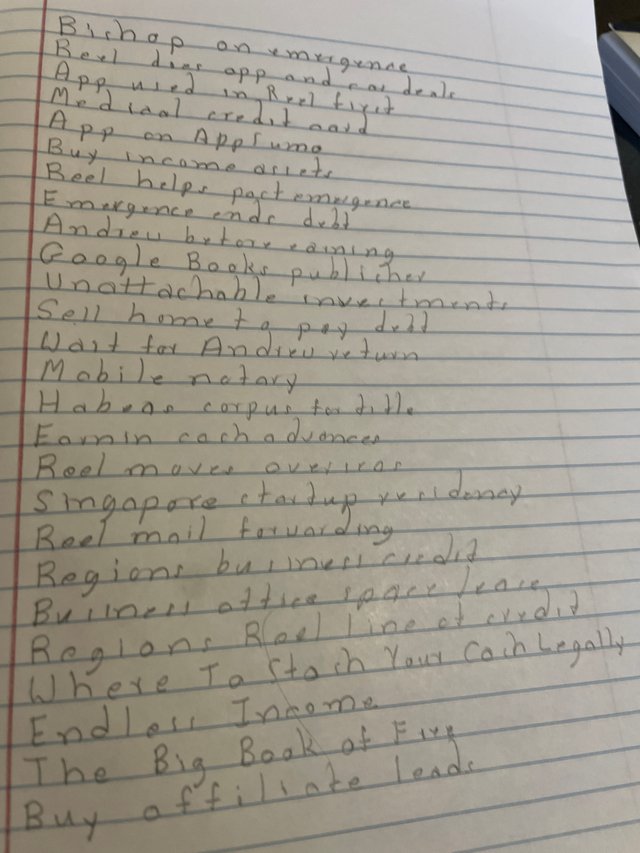 Bishop on emergence
Reel does app and car deals
App used in Reel first
Medical credit card
App on AppSumo
Buy income assets
Reel helps past emergence
Emergence ends debt
Andrew before earning
Google Books publisher
Unattachable investments
Sell home to pay debt
Wait for Andrew return
Mobile notary
Habeas corpus for title
Earnin cash advances
Reel moves overseas
Singapore startup residency
Reel mail forwarding
Regions business credit
Business office space lease
Regions Reel line of credit
Where To Stash Your Cash Legally
Endless Income
The Big Book of
Buy affiliate leads